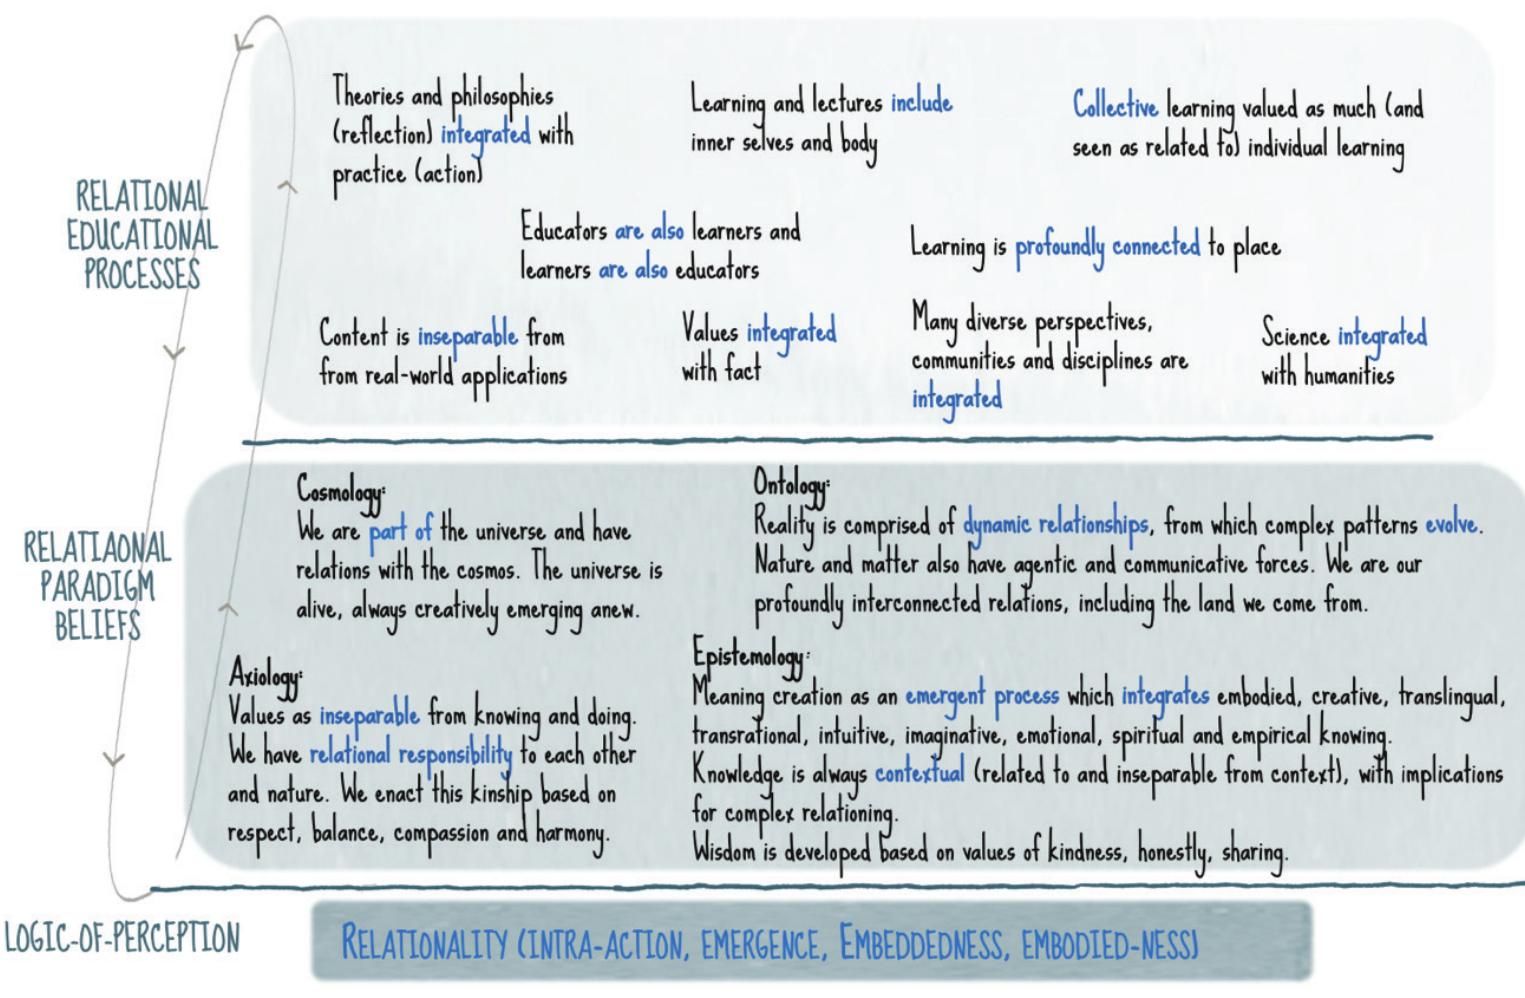 RELATIONAL
EDUCATIONAL
PROCESSES
Theories and philosophies
(reflection) integrated with
practice (action)
Learning and lectures include
inner selves and body
Collective learning valued as much (and
seen as related to) individual learning
Educators are also learners and
learners are also educators
Learning is profoundly connected to place
Content is inseparable from
from real-world applications
Values integrated
with fact
Many diverse perspectives,
communities and disciplines are
integrated
Science integrated
with humanities
RELATIAONAL
PARADIGM
BELIEFS
Cosmology:
We are part of the universe and have
relations with the cosmos. The universe is
alive, always creatively emerging anew.
Ontology:
Reality is comprised of dynamic relationships, from which complex patterns evolve.
Nature and matter also have agentic and communicative forces. We are our
profoundly interconnected relations, including the land we come from.
Axiology:
Values as inseparable from knowing and doing.
We have relational responsibility to each other
and nature. We enact this kinship based on
respect, balance, compassion and harmony.
Epistemology:
Meaning creation as an emergent process which integrates embodied, creative, translingual,
transrational, intuitive, imaginative, emotional, spiritual and empirical knowing.
Knowledge is always contextual (related to and inseparable from context), with implications
for complex relationing.
Wisdom is developed based on values of kindness, honestly, sharing.
LOGIC-OF-PERCEPTION
RELATIONALITY (INTRA-ACTION, EMERGENCE, EMBEDDEDNESS, EMBODIED-NESS)